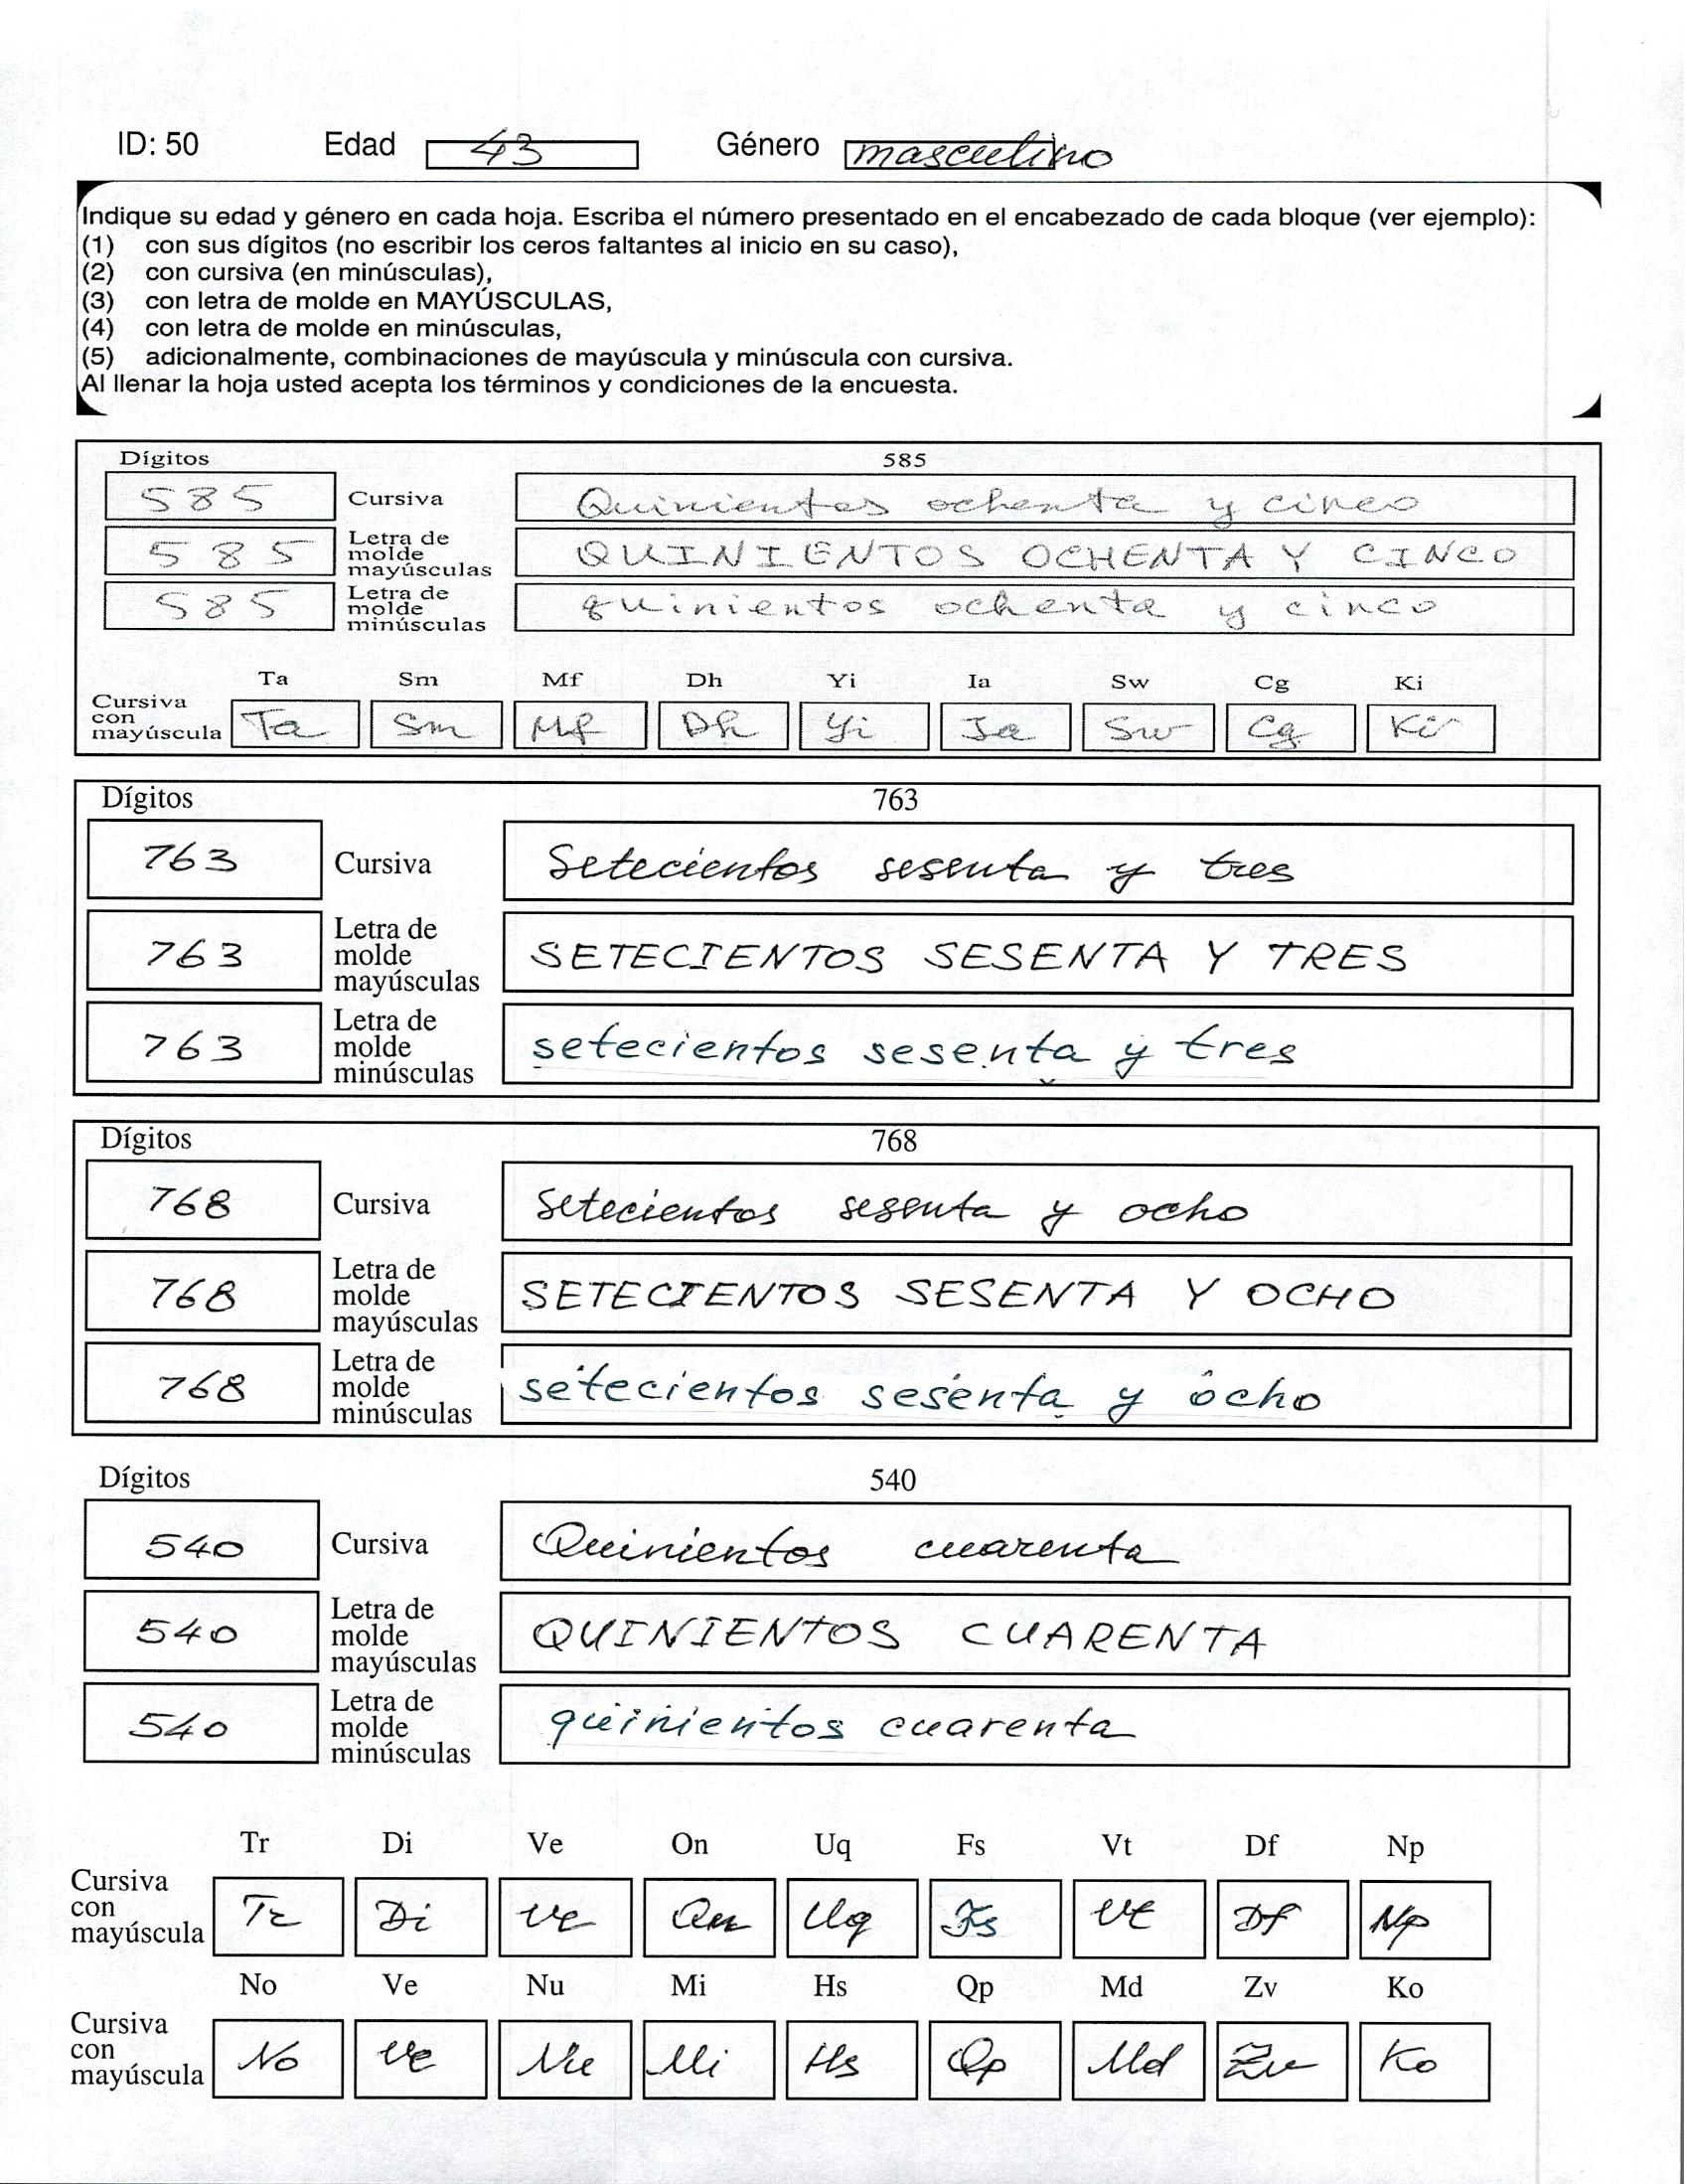 ID: 50 Edad 43 Género masculino
Indique su edad y género en cada hoja. Escriba el número presentado en el encabezado de cada bloque (ver ejemplo):
(1) con sus dígitos (no escribir los ceros faltantes al inicio en su caso),
(2) con cursiva (en minúsculas),
(3) con letra de molde en MAYÚSCULAS,
(4) con letra de molde en minúsculas,
(5) adicionalmente, combinaciones de mayúscula y minúscula con cursiva.
Al llenar la hoja usted acepta los términos y condiciones de la encuesta.
Dígitos 585
585 Cursiva Quinientos ochenta y cinco
585 Letra de molde mayúsculas QUINIENTOS OCHENTA Y CINCO
585 Letra de molde minúsculas quinientos ochenta y cinco
Ta Sm Mf Dh Yi Ia Sw Cg Ki
Cursiva con mayúscula Ta Sm Mf Dh Yi Ia Sw Cg Ki
Dígitos 763
763 Cursiva Setecientos sesenta y tres
763 Letra de molde mayúsculas SETECIENTOS SESENTA Y TRES
763 Letra de molde minúsculas setecientos sesenta y tres
Dígitos 768
768 Cursiva Setecientos sesenta y ocho
768 Letra de molde mayúsculas SETECIENTOS SESENTA Y OCHO
768 Letra de molde minúsculas setecientos sesenta y ocho
Dígitos 540
540 Cursiva Quinientos cuarenta
540 Letra de molde mayúsculas QUINIENTOS CUARENTA
540 Letra de molde minúsculas quinientos cuarenta
Tr Di Ve On Uq Fs Vt Df Np
Cursiva con mayúscula Tr Di Ve On Uq Fs Vt Df Np
No Ve Nu Mi Hs Qp Md Zv Ko
Cursiva con mayúscula No Ve Nu Mi Hs Qp Md Zv Ko